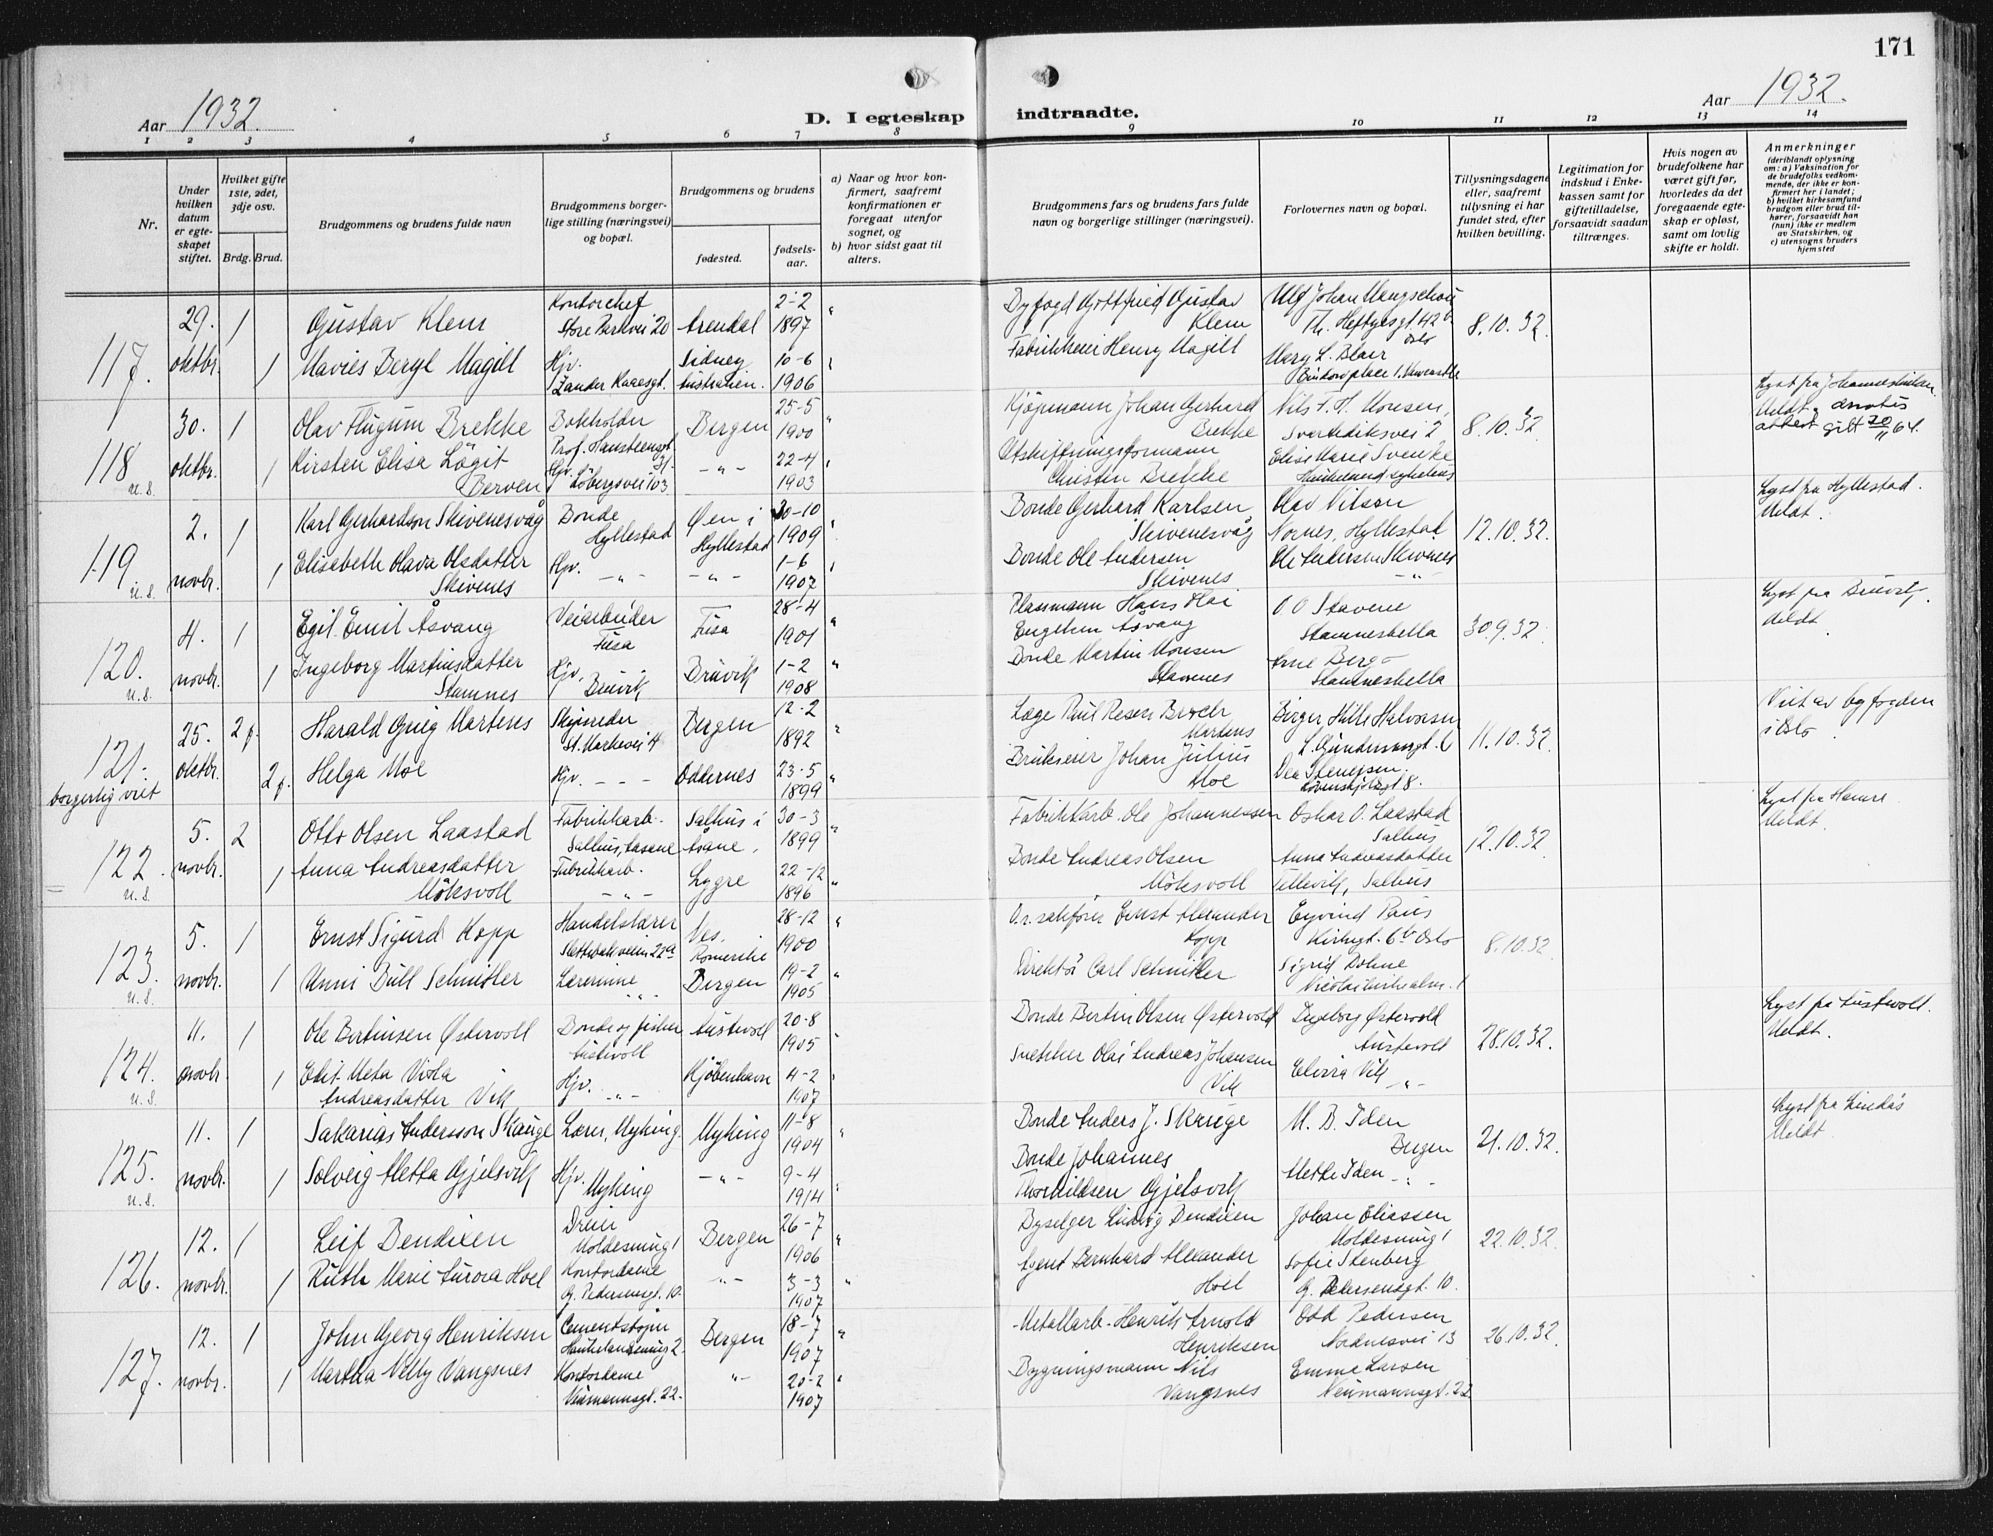 171
Aar 1932.
D. I egteskap indtraadte.
Aar 1932.
1 2 3 4 5 6 7 8 9 10 11 12 13 14
Nr.
Under hvilken datum er egteskapet stiftet.
Hvilket gifte 1ste, 2det, 3dje osv.
Brdg. Brud.
Brudgommens og brudens fulde navn
Brudgommens borgerlige stilling (næringsvei) og bopæl.
Brudgommens og brudens
fødested. fødselsaar.
a) Naar og hvor konfirmert, saafremt konfirmationen er foregaat utenfor sognet, og
b) hvor sidst gaat til alters.
Brudgommens fars og brudens fars fulde navn og borgerlige stillinger (næringsvei).
Forlovernes navn og bopæl.
Tillysningsdagene eller, saafremt tillysning ei har fundet sted, efter hvilken bevilling.
Legitimation for indskud i Enkekassen samt for giftetilladelse, forsaavidt saadan tiltrænges.
Hvis nogen av brudefolkene har været gift før, hvorledes da det foregaaende egteskap er opløst, samt om lovlig skifte er holdt.
Anmerkninger
(deriblandt oplysning om: a) Vaksination for de brudefolks vedkommende, der ikke er konfirmert her i landet; b) hvilket kirkesamfund brudgom eller brud tilhører, forsaavidt han (hun) ikke er medlem av Statskirken, og c) utensogns bruders hjemsted
117. 29. 1 Gustav Klem Kontorchef Store Parkvei 20 Arendal 2-2 1897 Byfogd Gottfried Gustav Klem 8.10.32.
oktbr. 1 Mavies Beryl Magill Hjv. Zander Kaaesgt. Sidney Australien. 10-6 1906 Fabrikkeier Henry Magill Mary L. Blair
118 u.s. 30. 1 Olav Flugum Brekke Bokholder Prof. Hansteensgt. 31. Bergen 25-5 1900 Kjøpmann Johan Gerhard Brekke Nils S. H. Monsen, Svartediksvei 2 8.10.32 Lyst fra Johanneskirken Meldt.
oktbr. 1 Kirsten Elisa Lögit Berven Hjv. Løbergsvei 103 -"- 22-4 1903 Utskiftningsformann Christen Brekke Elise Marie Svenke
119 u.s. 2. 1 Karl Gerhardson Skivenesvåg Bonde Hyllestad Øen i Hyllestad 20-10 1909 Bonde Gerhard Karlsen Skivenesvåg Olav Nilsen Nornes, Hyllestad 12.10.32. Lyst fra Hyllestad. Meldt.
novbr. 1 Elisabeth Olava Olsdatter Skivenes Hjv. -"- -"- 1-6 1907 Bonde Ole Andersen Skivenes Ole Andersen Skivenes -"-
120. u.s. 4. 1 Egil Emil Åsvang Veiarbeider Fusa Fusa 28-4 1901 Plassmann Hans Kai Engelsen Åsvang O O Stavene Stamneshella 30.9.32. Lyst fra Bruvik. Meldt.
novbr. 1 Ingeborg Martinsdatter Stamnes Hjv. Bruvik Bruvik 1-2 1908 Bonde Martin Monsen Stamnes Arne Berg Stamneshella
121. borgerlig viet 25. 2 f. Harald Grieg Martens Skibsreder St. Markevei 4 Bergen 12-2 1892 Læge Paul Resen Broch Martens Birger Hille Halvorsen 11.10.32. Viet av byfogden i Oslo.
oktbr. 2 f. Helga Moe Hjv. - - - Oddernes 23-5 1899 Brukseier Johan Julius Moe Dea Stenersen
122. u.s. 5. 2 Otto Olsen Laastad Fabrikkarb. Salhus, Aasane Salhus i Åsane. 30-3 1899 Fabrikkarb. Ole Johannessen Oskar O. Laastad Salhus 12.10.32. Lyst fra Hamre Meldt.
novbr. 1 Anna Andreasdatter Möksvoll Fabrikkarb. -"- Lygre 22-12 1896 Bonde Andreas Olsen Möksvoll Anna Andreasdatter Tellevik, Salhus
123. u.s. 5. 1 Ernst Sigurd Kopp Handelslærer Slettebakveien 22a Nes. Romerike 28-12 1900 O.r.sakfører Ernst Alexander Kopp Eyvind Paus Kirkegt. 6b Oslo 8.10.32
novbr. 1 Unni Bull Schnitler Lærerinne " " Bergen 19-2 1905 Direktör Carl Schnitler Sigrid Dohne
124. u.s. 11. 1 Ole Bertinsen Østervoll Bonde og fisker Austevoll Austevoll 20-8 1905 Bonde Bertin Olsen Østervold Ingeborg Østervold Austevold 28.10.32. Lyst fra Austevold. Meldt.
novbr. 1 Edit Meta Viola Andreasdatter Vik Hjv. -"- Kjöbenhavn 4-2 1907 Snekker Olai Andreas Johansen Vik Elvira Vik -"-
125. u.s. 11. 1 Sakarias Andersson Skauge Lærer, Myking Myking 11-8 1904 Bonde Anders J. Skauge M. B. Iden Bergen 21.10.32. Lyst fra Lindås Meldt
novbr. 1 Solveig Metta Gjelsvik Hjv. Myking -"- 9-4 1914 Bonde Johannes Thorkildsen Gjelsvik Mette Iden -"-
126. 12. 1 Leif Bendixen Dreier Moldesmug 1 Bergen 26-7 1906 Byselger Ludvig Bendixen Johan Eliassen Moldesmug 1 22.10.32.
novbr. 1 Ruth Marie Aurora Hoel Kontordame G. Pedersensgt. 10. "- 3-3 1907 Agent Bernhard Alexander Hoel Sofie Stenberg G. Pedersensgt. 10.
127. 12. 1 John Georg Henriksen Cementstøper Haukelandsmug 2. Bergen 18-7 1907 Metallarb. Henrik Arnold Henriksen Odd Pedersen Nordnesvei 13 26.10.32.
novbr. 1 Martha Nelly Vangsnes Kontordame Neumannsgt. 22. "- 20-2 1907 Bygningsmann Nils Vangsnes Emma Larsen Neumannsgt. 22